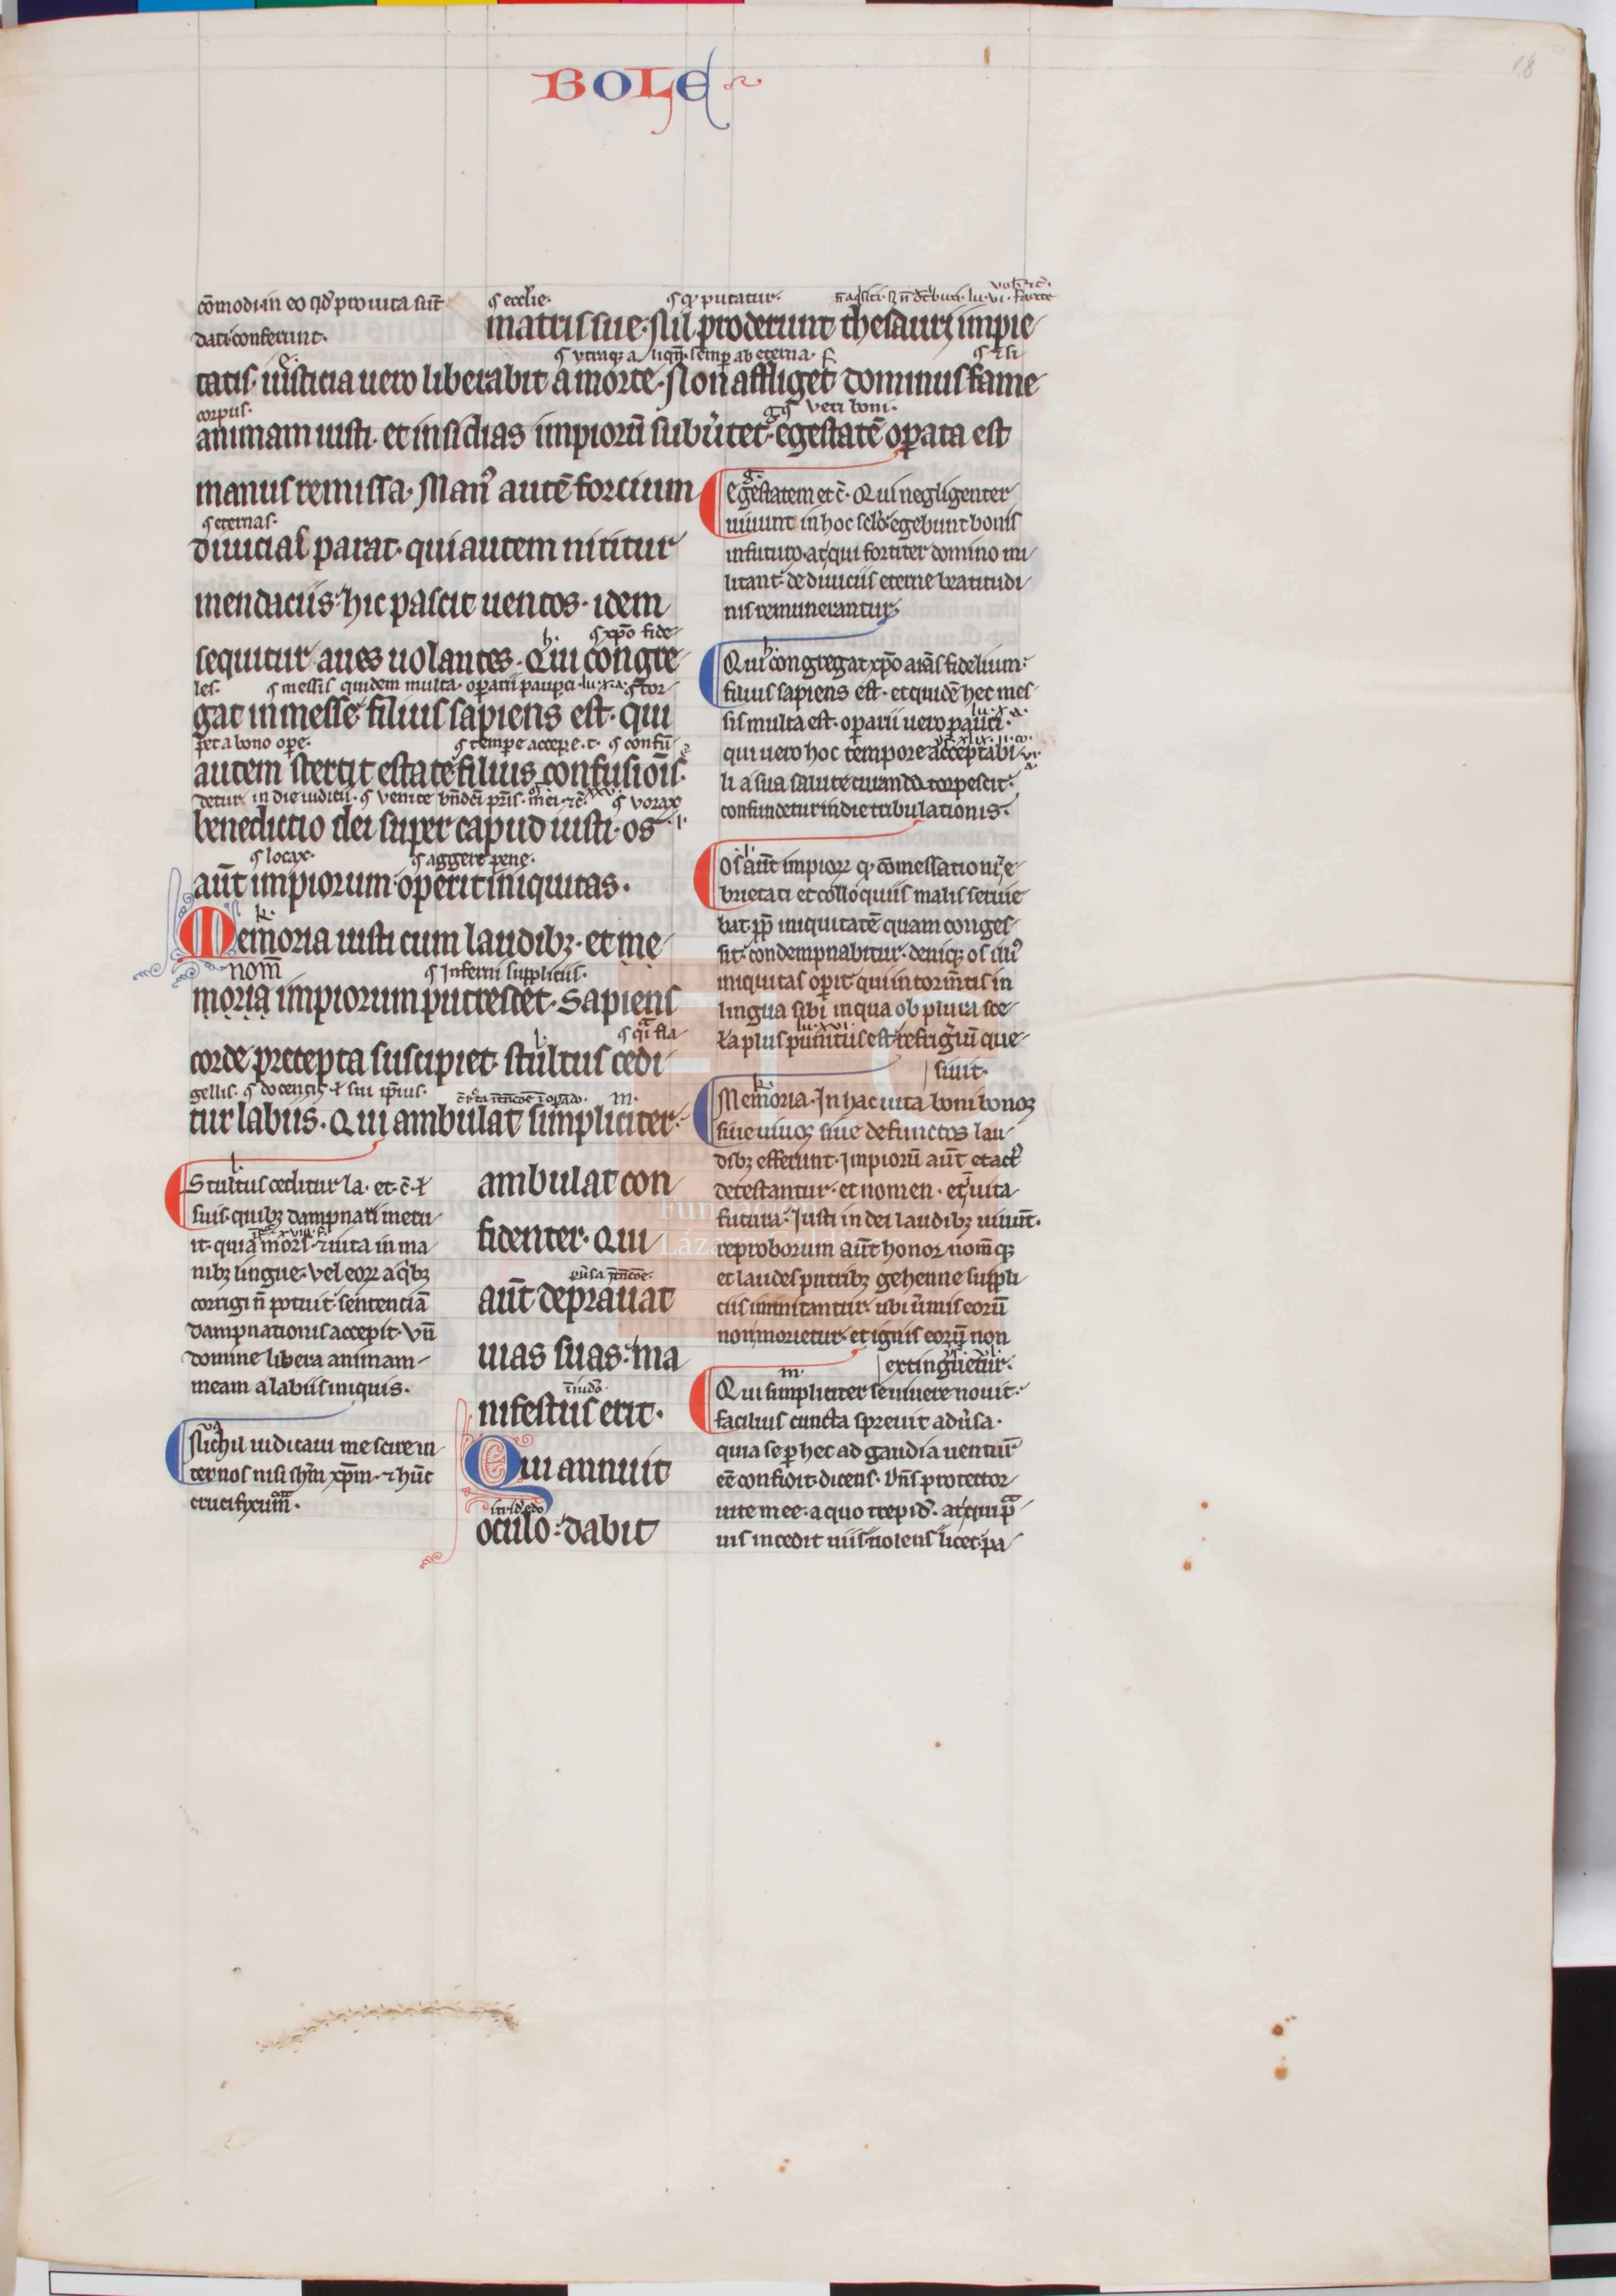 BOLE
18
cōmodi in eo qđ pro uita suit
dati conferunt.
ecclie. putatur.
matris sue. Nil proderunt thesauri impie
tatis. iusticia uero liberabit a morte. Non affliget dominus fame
corpus. ueri boni.
animam iusti. et insidias impiorū subuertet. egestatē operata est
manus remissa. Man' autē fortium
eternas.
diuicias parat. qui autem nititur
mendaciis. hic pascit uentos. idem
h. xpo fide
sequitur aues uolantes. Qui congre
les. messis quidem multa. operarii pauci. lu. x. a. tor
gat in messe. filius sapiens est. qui
pet a bono ope. tempore accep. confu
autem stertit estate. filius confusiois.
detur in die iudicii. uenite bn̄dci pris mei. uorax
benedictio dei super capud iusti. os
locax. aggere pene.
aūt impiorum operit iniquitas.
k.
Memoria iusti cum laudibz. et me
nom̄ Inferni suppliciis.
moria impiorum putrescet. Sapiens
l. fla
corde precepta suscipiet. stultus cedi
gellis. docentis
tur labiis. Qui ambulat simpliciter.
ambulat con
fidenter. Qui
aūt deprauat
uias suas. ma
nifestus erit.
Qui annuit
oculo. dabit
l.
Stultus ceditur la. et c̄. ł
suis. quibz dampnari metu
it. quia mors. ⁊ uita in ma
nibz lingue. Vel eorꝝ a qibz
corrigi n̄ potuit. sentenciā
dampnationis accepit. Vn̄
domine libera animam
meam a labiis iniquis.
Nichil iudicaui me scire in
ter nos nisi ihm xpm. ⁊ hūc
crucifixum.
g.
Egestatem et c̄. Qui negligenter
uiuunt in hoc sclo. egebunt bonis
in futuro. at qui fortiter domino mi
litant. de diuiciis eterne beatitudi
nis remunerantur.
h.
Qui congregat xpo aīas fidelium.
filius sapiens est. et quidē hec mes
lu. x. a.
sis multa est. operarii uero pauci.
qui uero hoc tempore acceptabi
li a sua salute curanda torpescit.
confundetur in die tribulationis.
Os aūt impiorꝝ qꝫ cōmessationi. e
brietati et colloquiis malis seruie
bat. ꝓp iniquitatē quam conges
sit. condempnabitur. deniqꝫ os illi'
iniquitas operit. qui in torm̄tis in
lingua sibi in qua ob plura sce
lu. xvi.
la plus punitus est. refrigiū que
siuit.
k.
Memoria. In hac uita boni bonoꝝ
siue uiuos siue defunctos lau
dibz efferunt. Impiorū aūt et act'
detestantur. et nomen. et uita
futura. Iusti in dei laudibz uiuūt.
reproborum aūt honor nom̄qꝫ
et laudes putribz gehenne suppli
ciis inmutantur. ubi uermis eorū
non morietur. et ignis eorū non
extinguetur.
m.
Qui simpliciter se uiuere nouit.
facilius cuncta spreuit adūsa.
quia se p hec ad gaudia uenturū
eē confidit. dicens. Dn̄s protector
uite mee. a quo trepid'. at qui pra
uis incedit uiis. nolens licet. pa